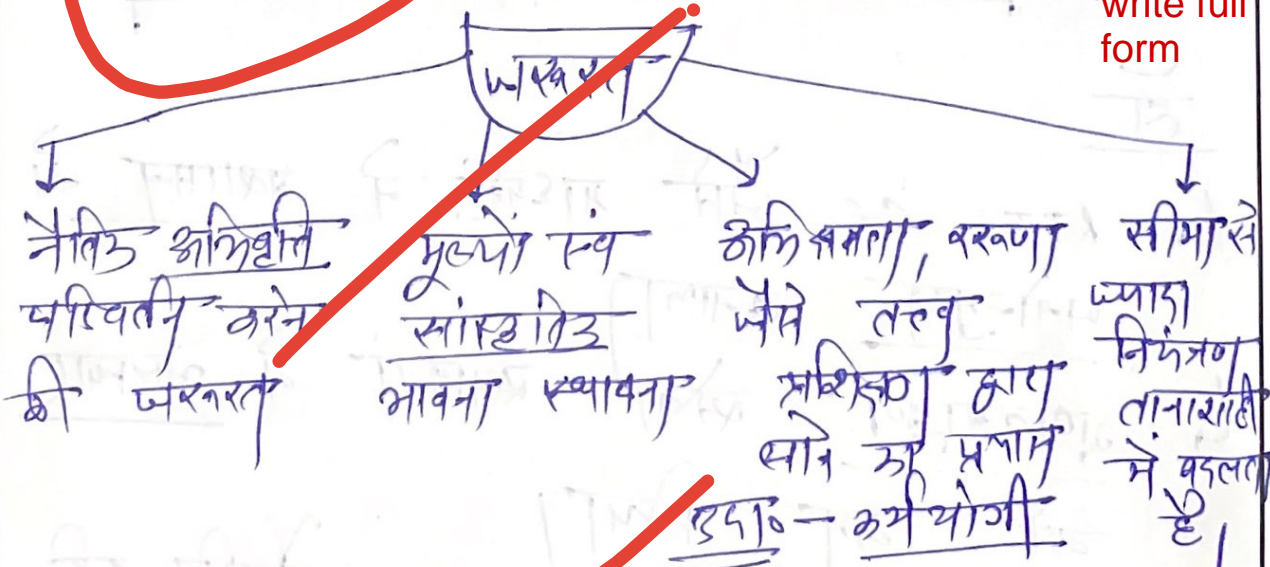 write full
form
जरूरत
नैतिक अभिवृत्ति
परिवर्तन करने
की जरूरत
मूल्यों एवं
सांस्कृतिक
भावना स्थापना
अभिक्षमता, करूणा
जैसे तत्त्व
प्रशिक्षण द्वारा
लाने का प्रयास
उदा०- कर्मयोगी
सीमा से
ज्यादा
नियंत्रण
तानाशाही
में बदलता
है।